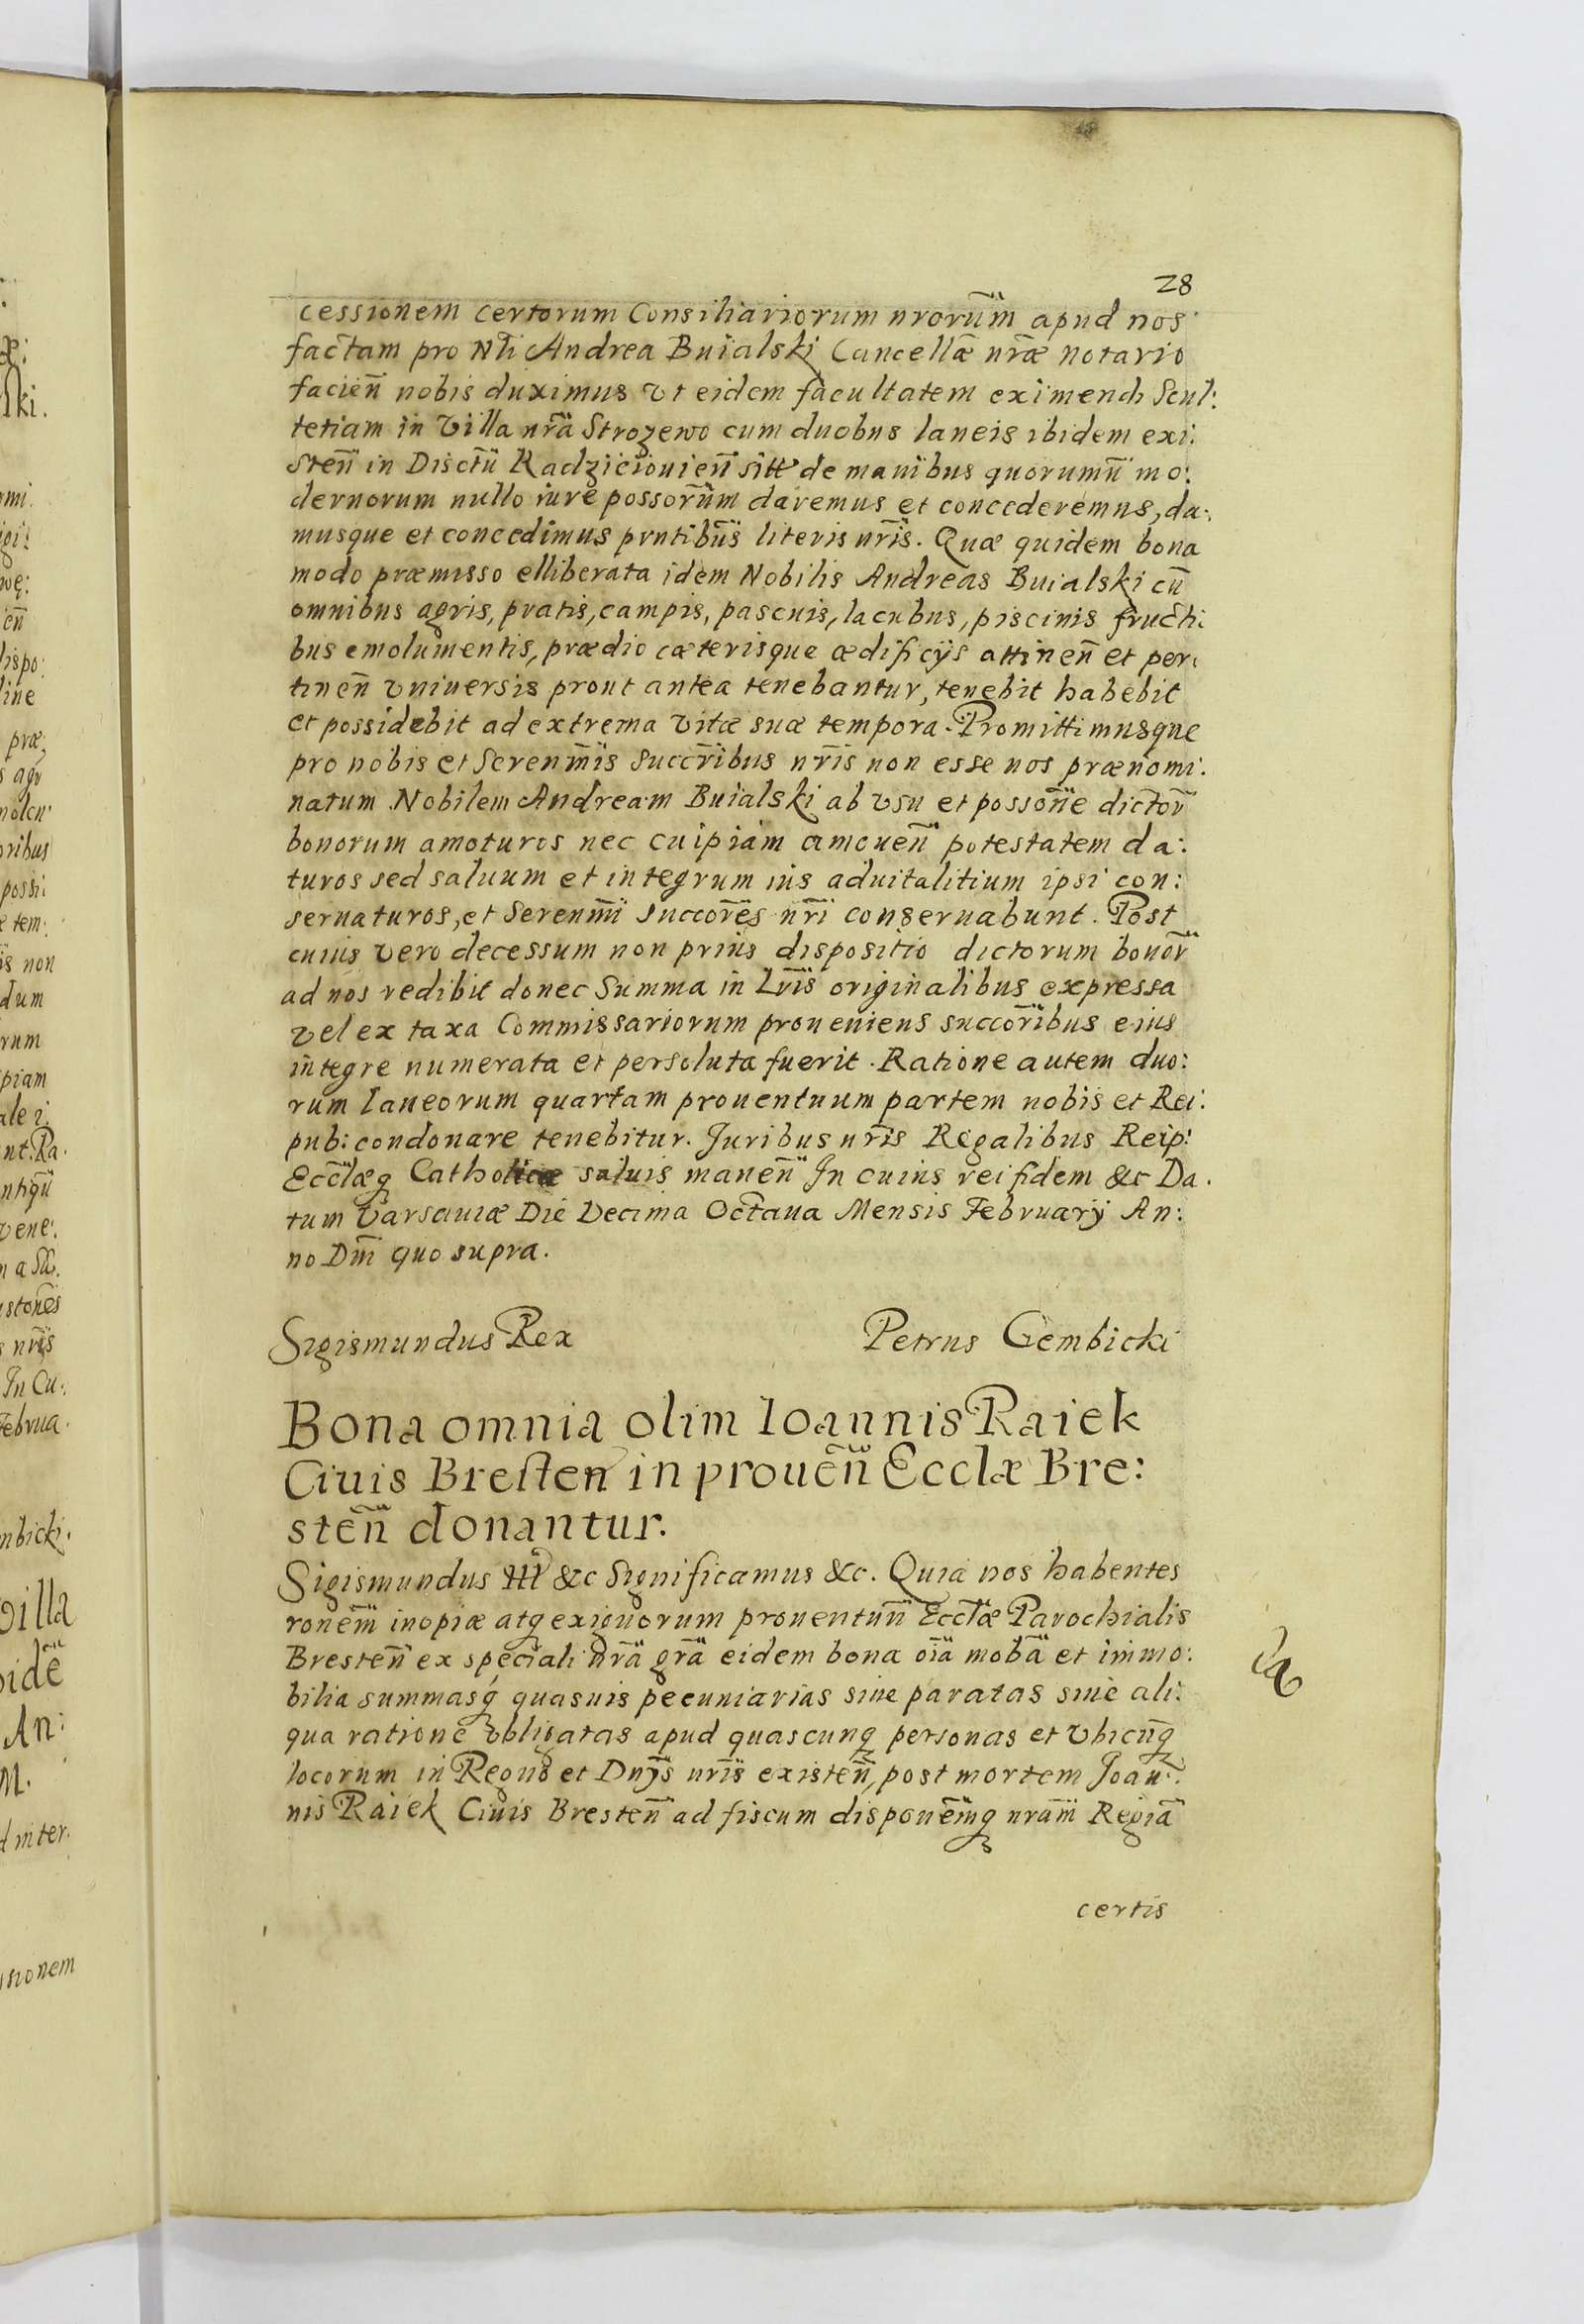 28
cessionem certorum Consiliariorum nrorum̃ apud nos
factam pro Nli Andrea Buialski Cancellæ nræ notario
facień nobis duximus vt eidem facultatem eximendi Scul:
tetiam in Villa nrã Strozewo cum duobus laneis ibidem exi:
steñ in Disctũ Radzieiouieñ sitt de manibus quorumũ mo:
dernorum nullo iure possorũm daremus et concederemus, da:
musque et concedimus pñtibus literis nris. Quæ quidem bona
modo præmisso elliberata idem Nobilis Andreas Buialski cũ
omnibus agris, pratis, campis, pascuis, lacubus, piscinis fructi:
bus emolumentis, prædio cæterisque ædificijs attineñ et per:
tineñ vniuersis prout antea tenebantur, tenebit habebit
et possidebit ad extrema vitæ suæ tempora. Promittimusque
pro nobis et Serenm̃is Succr̃ibus nris non esse nos prænomi:
natum Nobilem Andream Buialski ab vsu et possoñe dictor̃
bonorum amoturos nec cuipiam amoueñ potestatem da:
turos sed saluum et integrum ius aduitalitium ipsi con:
seruaturos, et Serenm̃i succorẽs nri conseruabunt. Post
cuius vero decessum non prius dispositio dictorum bonor̃
ad nos redibit donec Summa in Lr̃is originalibus expressa
vel ex taxa Commissariorum proueniens succor̃ibus eius
integre numerata et persoluta fuerit. Ratione autem duo:
rum laneorum quartam prouentuum partem nobis et Rei:
pub: condonare tenebitur. Juribus nr̃is Regalibus Reip:
Eccl̃æq Catholicæ saluis maneñ In cuius rei fidem &c Da:
tum Varsauiæ Die Decima Octaua Mensis February An:
no Dm̃i quo supra.
Sigismundus Rex Petrus Gembicki
Bona omnia olim Ioannis Raiek
Ciuis Bresten in proueñ Ecclæ Bre:
steñ donantur.
Sigismundus III &c Significamus &c. Quia nos habentes
ronem̃ inopiæ atq exiguorum prouentuũ Eccl̃æ Parochialis
Bresteñ ex speciali nr̃a gr̃a eidem bona oĩa mobã et immo:
bilia summasq quasuis pecuniarias siue paratas siue ali:
qua ratione obligatas apud quascunq personas et vbicũq
locorum in Regno et Dnỹs nr̃is existeñ, post mortem Joan:
nis Raiek Ciuis Bresteñ ad fiscum disponem̃q nram̃ Regiã
certis